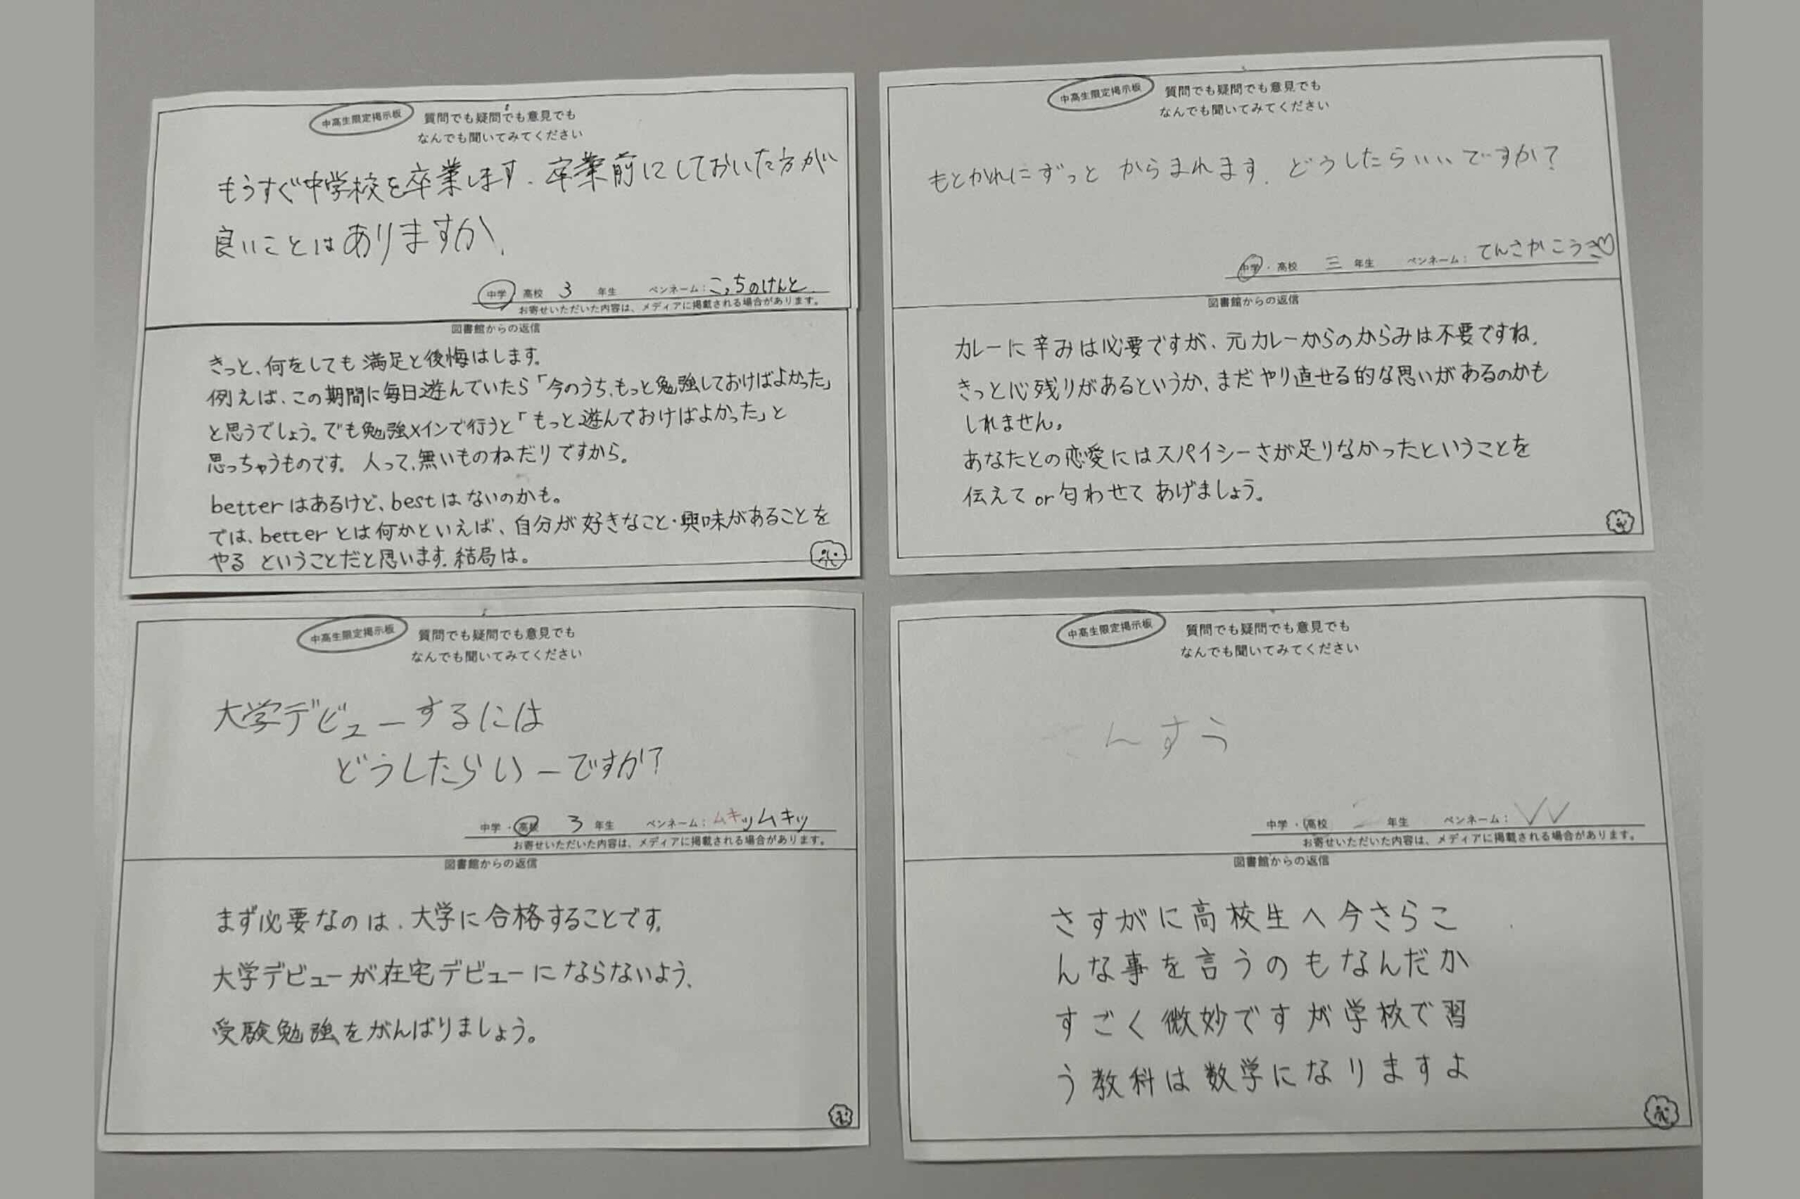 中高生限定掲示板
質問でも疑問でも意見でも
なんでも聞いてみてください
もうすぐ中学校を卒業します。卒業前にしておいた方が
良いことはありますか。
中学・高校 3 年生 ペンネーム：こっちのけんと
お寄せいただいた内容は、メディアに掲載される場合があります。
図書館からの返信
きっと、何をしても満足と後悔はします。
例えば、この期間に毎日遊んでいたら「今のうち、もっと勉強しておけばよかった」
と思うでしょう。でも勉強メインで行うと「もっと遊んでおけばよかった」と
思っちゃうものです。人って、無いものねだりですから。
betterはあるけど、bestはないのかも。
では、betterとは何かといえば、自分が好きなこと・興味があることを
やる ということだと思います。結局は。
中高生限定掲示板
質問でも疑問でも意見でも
なんでも聞いてみてください
もとかれにずっと からまれます。どうしたらいいですか？
中学・高校 三 年生 ペンネーム：てんさかこうき♡
図書館からの返信
カレーに辛みは必要ですが、元カレーからのからみは不要ですね。
きっと心残りがあるというか、まだやり直せる的な思いがあるのかも
しれません。
あなたとの恋愛にはスパイシーさが足りなかったということを
伝えて or 匂わせて あげましょう。
中高生限定掲示板
質問でも疑問でも意見でも
なんでも聞いてみてください
大学デビューするには
どうしたらいーですか？
中学・高校 3 年生 ペンネーム：ムキッムキッ
お寄せいただいた内容は、メディアに掲載される場合があります。
図書館からの返信
まず必要なのは、大学に合格することです。
大学デビューが在宅デビューにならないよう、
受験勉強をがんばりましょう。
中高生限定掲示板
質問でも疑問でも意見でも
なんでも聞いてみてください
さんすう
中学・高校 年生 ペンネーム：
お寄せいただいた内容は、メディアに掲載される場合があります。
図書館からの返信
さすがに高校生へ今さらこ
んな事を言うのもなんだか
すごく微妙ですが学校で習
う教科は数学になりますよ